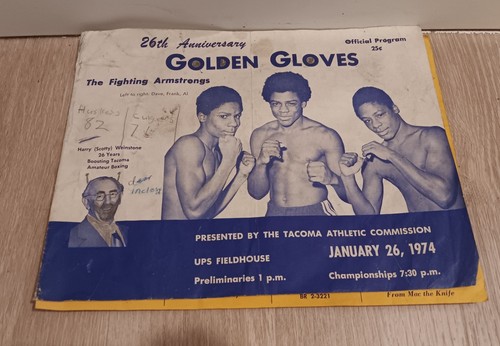 26th Anniversary
Official Program
25¢
GOLDEN GLOVES
The Fighting Armstrongs
Left to right: Dave, Frank, Al
82
Harry (Scotty) Weinstone
26 Years
Boosting Tacoma
Amateur Boxing
PRESENTED BY THE TACOMA ATHLETIC COMMISSION
UPS FIELDHOUSE
JANUARY 26, 1974
Preliminaries 1 p.m.
Championships 7:30 p.m.
BR 2-3221
From Mac the Knife